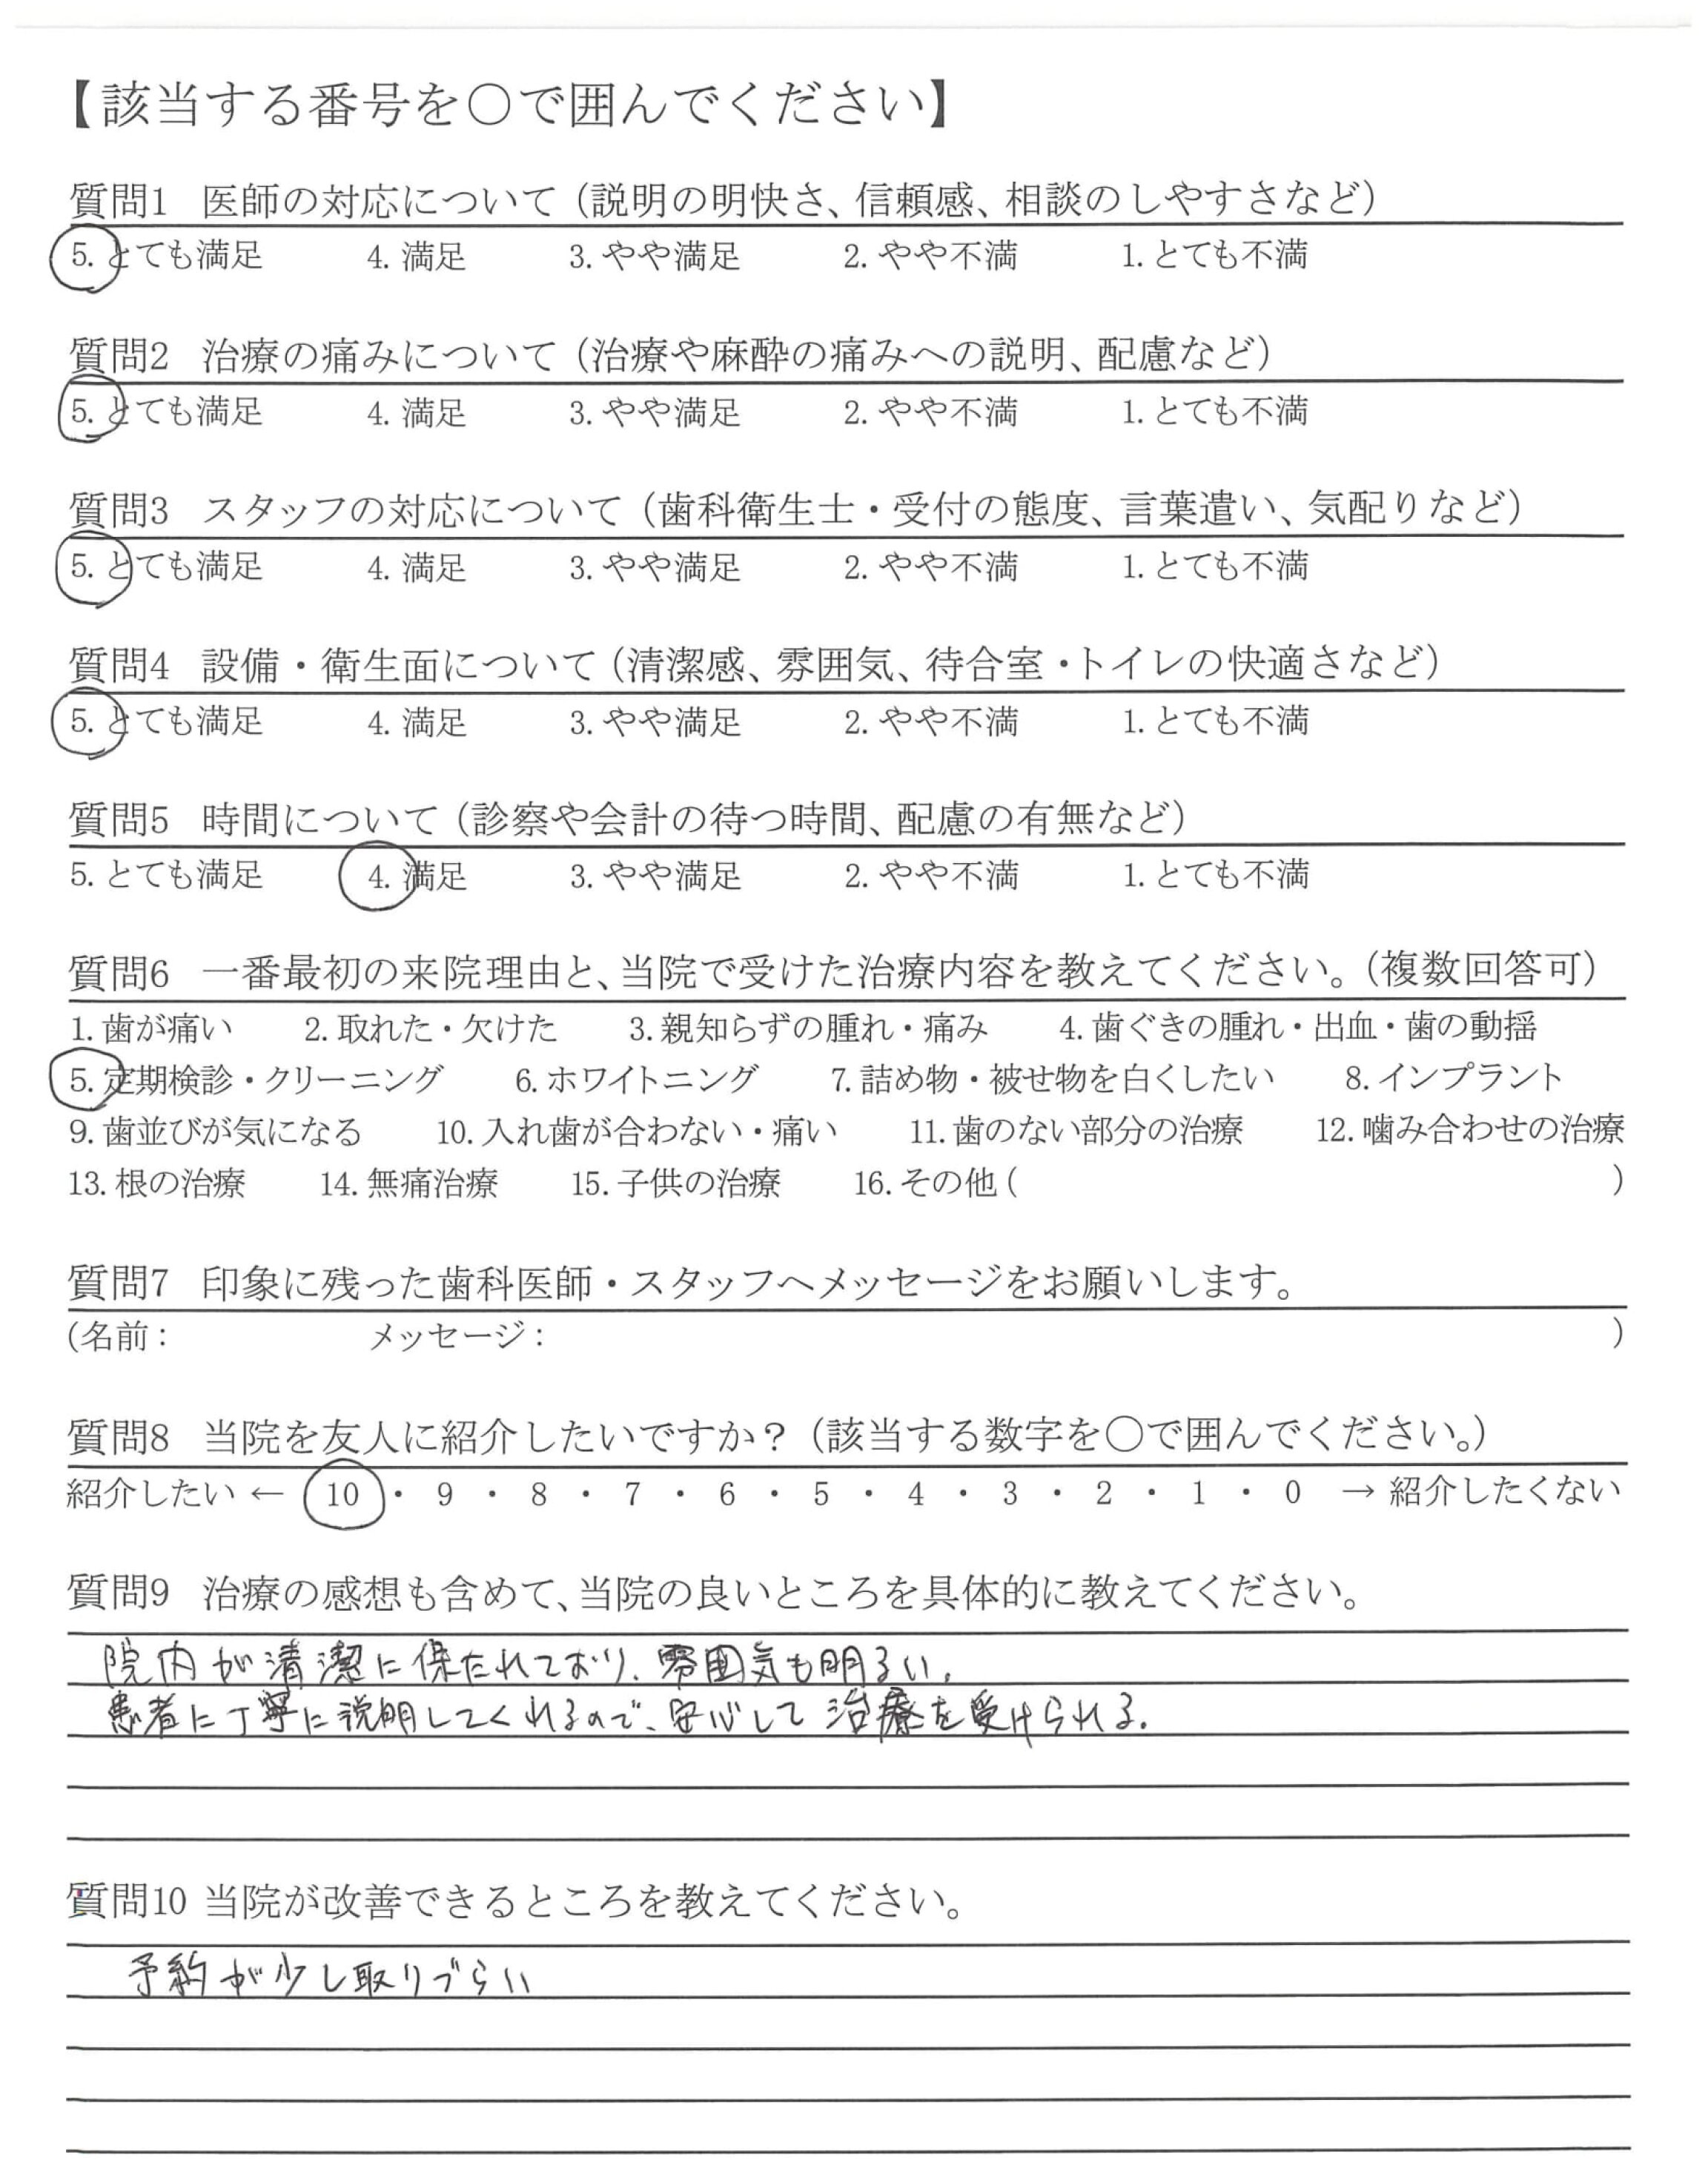 【該当する番号を〇で囲んでください】
質問1 医師の対応について（説明の明快さ、信頼感、相談のしやすさなど）
5. とても満足 4. 満足 3. やや満足 2. やや不満 1. とても不満
質問2 治療の痛みについて（治療や麻酔の痛みへの説明、配慮など）
5. とても満足 4. 満足 3. やや満足 2. やや不満 1. とても不満
質問3 スタッフの対応について（歯科衛生士・受付の態度、言葉遣い、気配りなど）
5. とても満足 4. 満足 3. やや満足 2. やや不満 1. とても不満
質問4 設備・衛生面について（清潔感、雰囲気、待合室・トイレの快適さなど）
5. とても満足 4. 満足 3. やや満足 2. やや不満 1. とても不満
質問5 時間について（診察や会計の待つ時間、配慮の有無など）
5. とても満足 4. 満足 3. やや満足 2. やや不満 1. とても不満
質問6 一番最初の来院理由と、当院で受けた治療内容を教えてください。（複数回答可）
1. 歯が痛い 2. 取れた・欠けた 3. 親知らずの腫れ・痛み 4. 歯ぐきの腫れ・出血・歯の動揺
5. 定期検診・クリーニング 6. ホワイトニング 7. 詰め物・被せ物を白くしたい 8. インプラント
9. 歯並びが気になる 10. 入れ歯が合わない・痛い 11. 歯のない部分の治療 12. 噛み合わせの治療
13. 根の治療 14. 無痛治療 15. 子供の治療 16. その他（ ）
質問7 印象に残った歯科医師・スタッフへメッセージをお願いします。
（名前： メッセージ： ）
質問8 当院を友人に紹介したいですか？（該当する数字を〇で囲んでください。）
紹介したい ← 10 ・ 9 ・ 8 ・ 7 ・ 6 ・ 5 ・ 4 ・ 3 ・ 2 ・ 1 ・ 0 → 紹介したくない
質問9 治療の感想も含めて、当院の良いところを具体的に教えてください。
院内が清潔に保たれており、雰囲気も明るい。
患者に丁寧に説明してくれるので、安心して治療を受けられる。
質問10 当院が改善できるところを教えてください。
予約が少し取りづらい